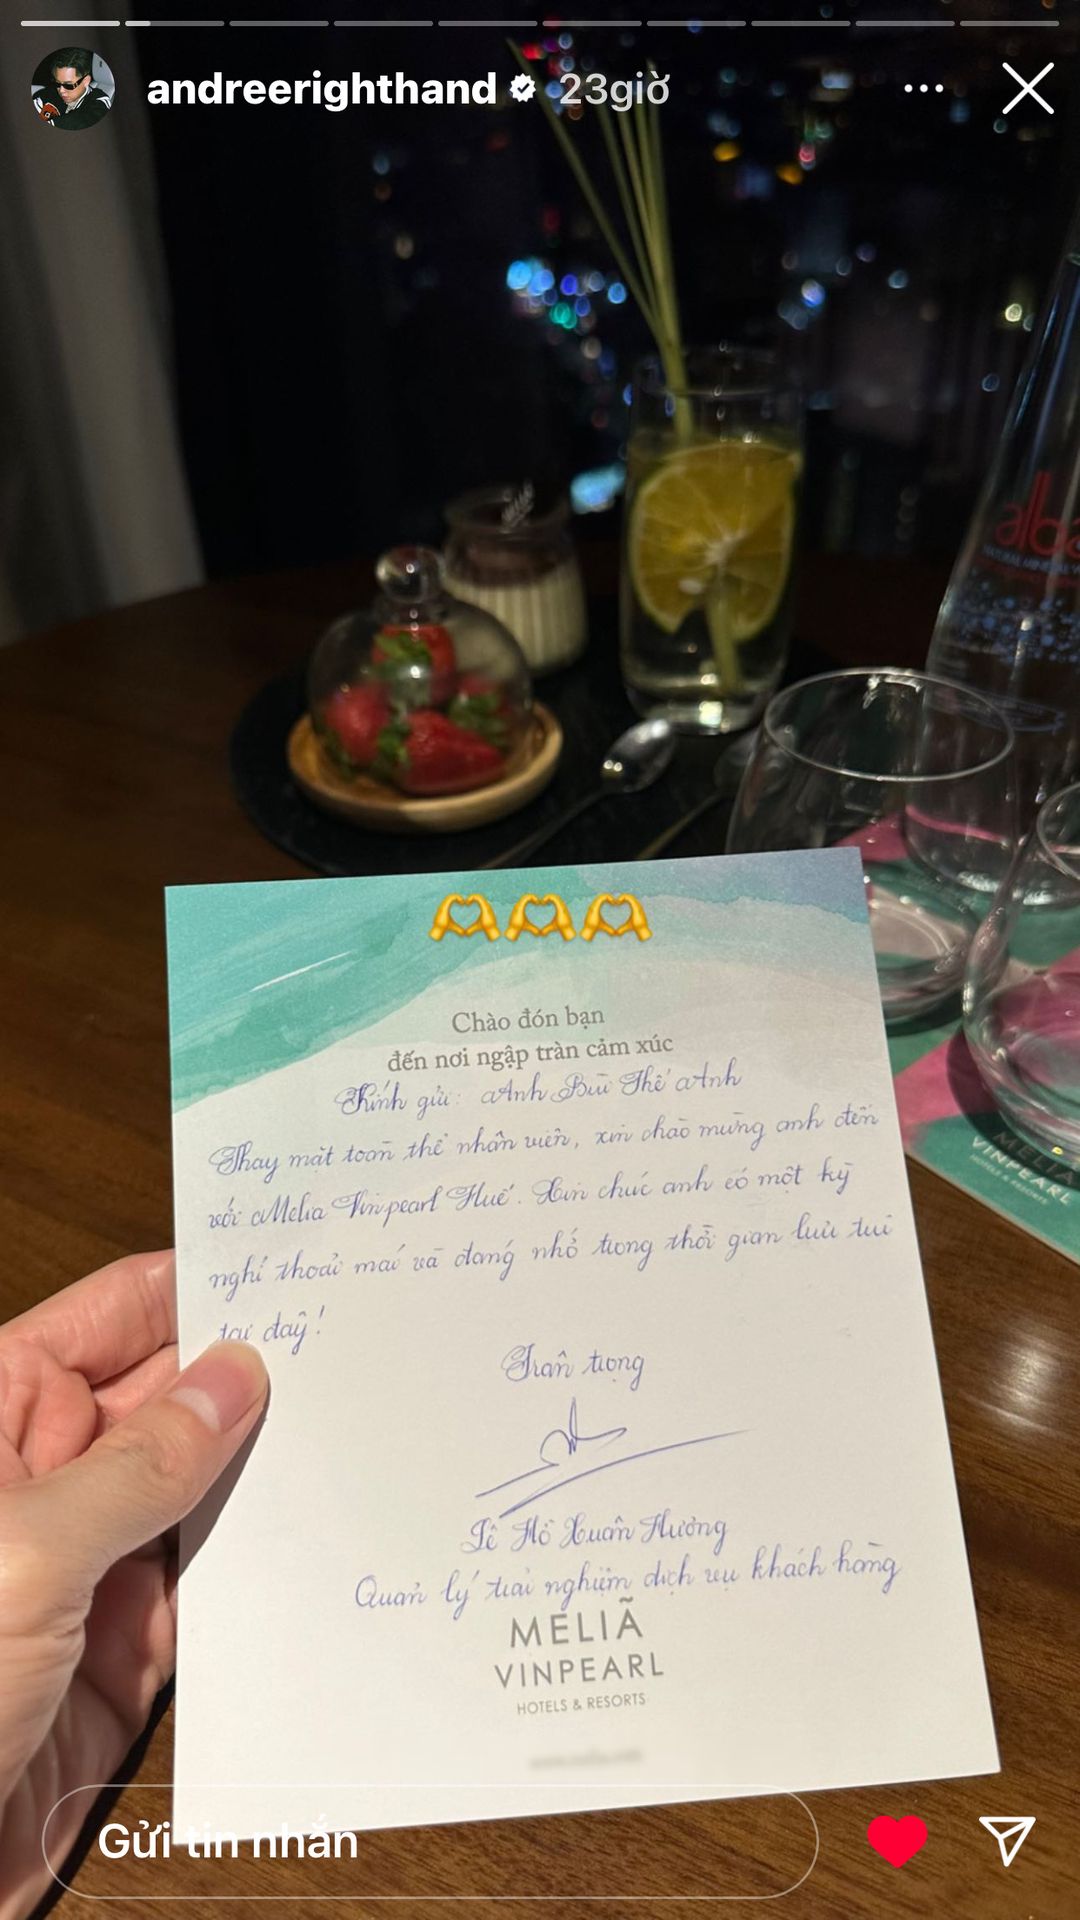 andreerighthand 23giờ
alba
Chào đón bạn
đến nơi ngập tràn cảm xúc
Kính gửi: Anh Bùi Thế Anh
Thay mặt toàn thể nhân viên, xin chào mừng anh đến
với Melia Vinpearl Huế. Xin chúc anh có một kỳ
nghỉ thoải mái và đáng nhớ trong thời gian lưu trú
tại đây!
Trân trọng
Lê Hồ Xuân Hương
Quản lý trải nghiệm dịch vụ khách hàng
MELIÃ
VINPEARL
HOTELS & RESORTS
MELIÃ
VINPEARL
HOTELS & RESORTS
Gửi tin nhắn